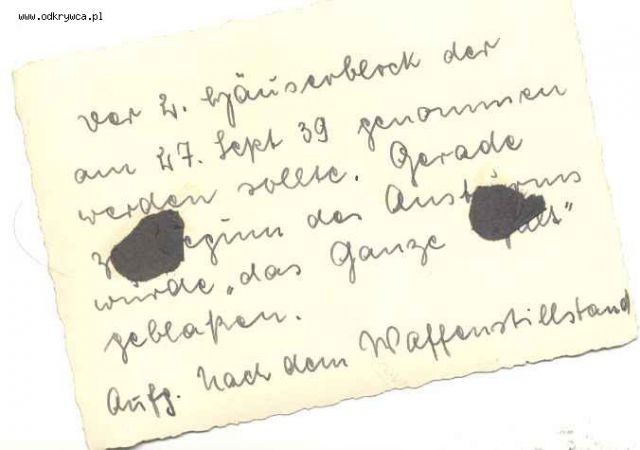 www.odkrywca.pl
Der 2. Häuserblock der
am 27. Sept 39 genommen
werden sollte. Gerade
des Ansturms
wurde „das Ganze
geblaßen.
Aufg. nach dem Waffenstillstand